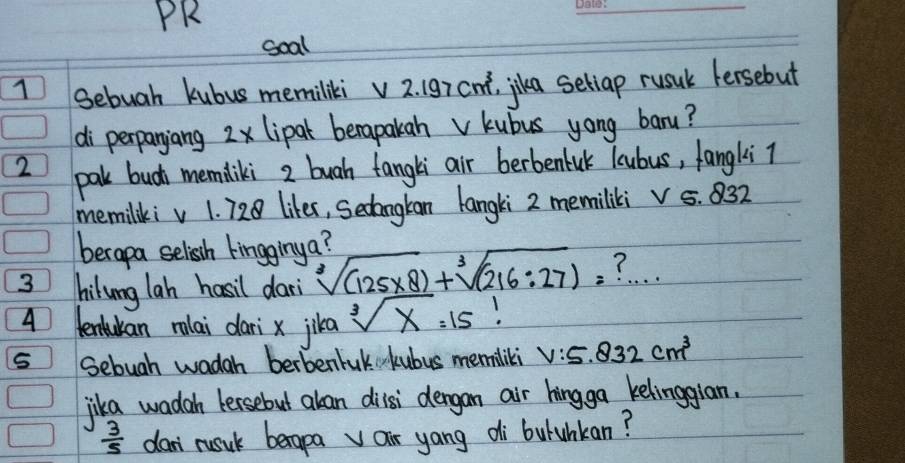 PR
Date:
Soal
1 Sebuah kubus memiliki V 2.197 cm³, jika setiap rusuk tersebut
di perpanjang 2x lipat berapakah V kubus yang baru?
2 pak budi memiliki 2 buah tangki air berbentuk kubus, tangki 1
memiliki V 1.728 liter, Sedangkan tangki 2 memiliki V 5.832
berapa selisih tingginya?
3 hitung lah hasil dari ∛(125×8) + ∛(216:27) = ?....
4 tentukan nilai dari x jika ∛x = 15 !
5 Sebuah wadah berbentuk kubus memiliki V: 5.832 cm³
jika wadah tersebut akan diisi dengan air hingga ketinggian.
3/5 dari rusuk berapa V air yang di butuhkan?